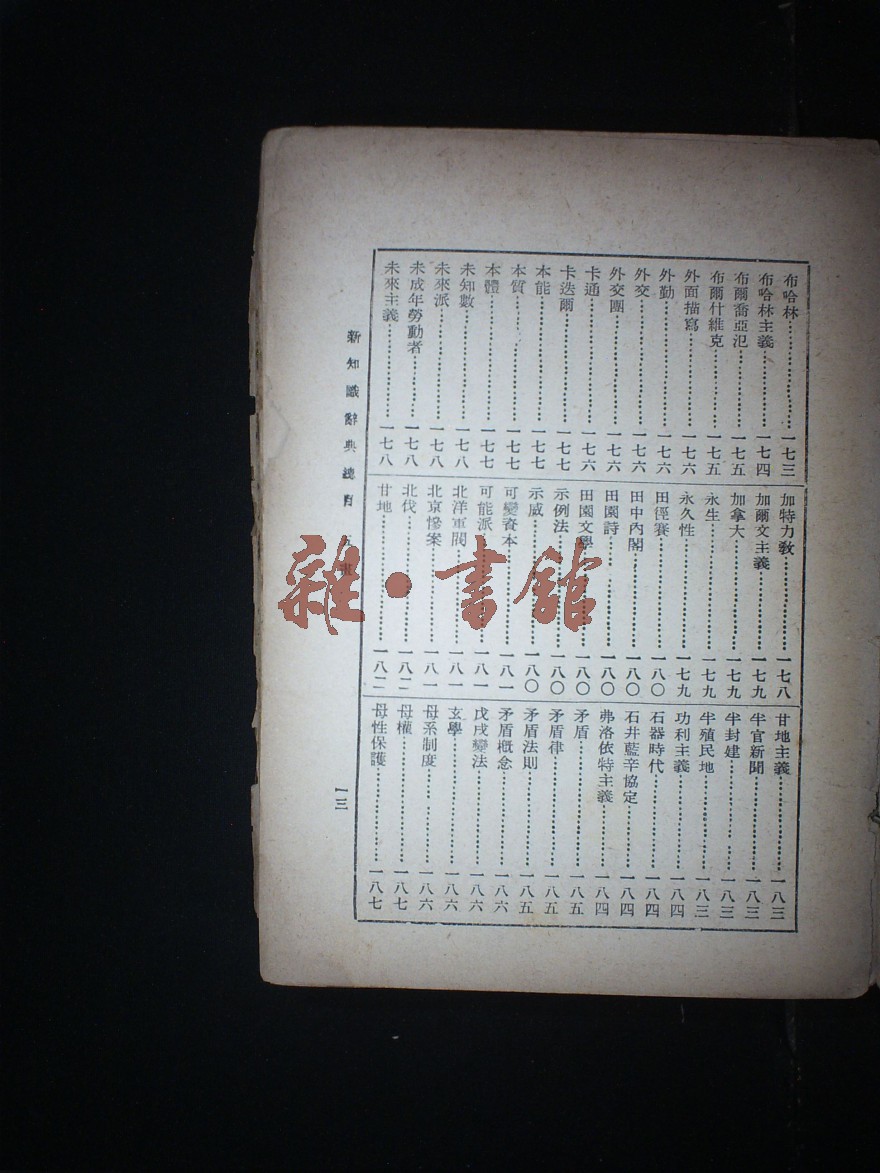 布哈林………………一七三
布哈林主義…………一七四
布爾喬亞氾…………一七五
布爾什維克…………一七五
外面描寫……………一七六
外勤…………………一七六
外交…………………一七六
外交團………………一七六
卡通…………………一七六
卡迭爾………………一七七
本能…………………一七七
本質…………………一七七
本體…………………一七七
未知數………………一七八
未來派………………一七八
未成年勞動者………一七八
未來主義……………一七八
加特力教……………一七八
加爾文主義…………一七九
加拿大………………一七九
永生…………………一七九
永久性………………一七九
田徑賽………………一八〇
田中內閣……………一八〇
田園詩………………一八〇
田園文學……………一八〇
示例法………………一八〇
示威…………………一八〇
可變資本……………一八一
可能派………………一八一
北洋軍閥……………一八一
北京慘案……………一八一
北伐…………………一八二
甘地…………………一八二
甘地主義……………一八三
半官新聞……………一八三
半封建………………一八三
半殖民地……………一八三
功利主義……………一八四
石器時代……………一八四
石井藍辛協定………一八四
弗洛依特主義………一八四
矛盾…………………一八五
矛盾律………………一八五
矛盾法則……………一八五
矛盾概念……………一八六
戊戌變法……………一八六
玄學…………………一八六
母系制度……………一八六
母權…………………一八七
母性保護……………一八七
新知識辭典總目
一三
雜·書館